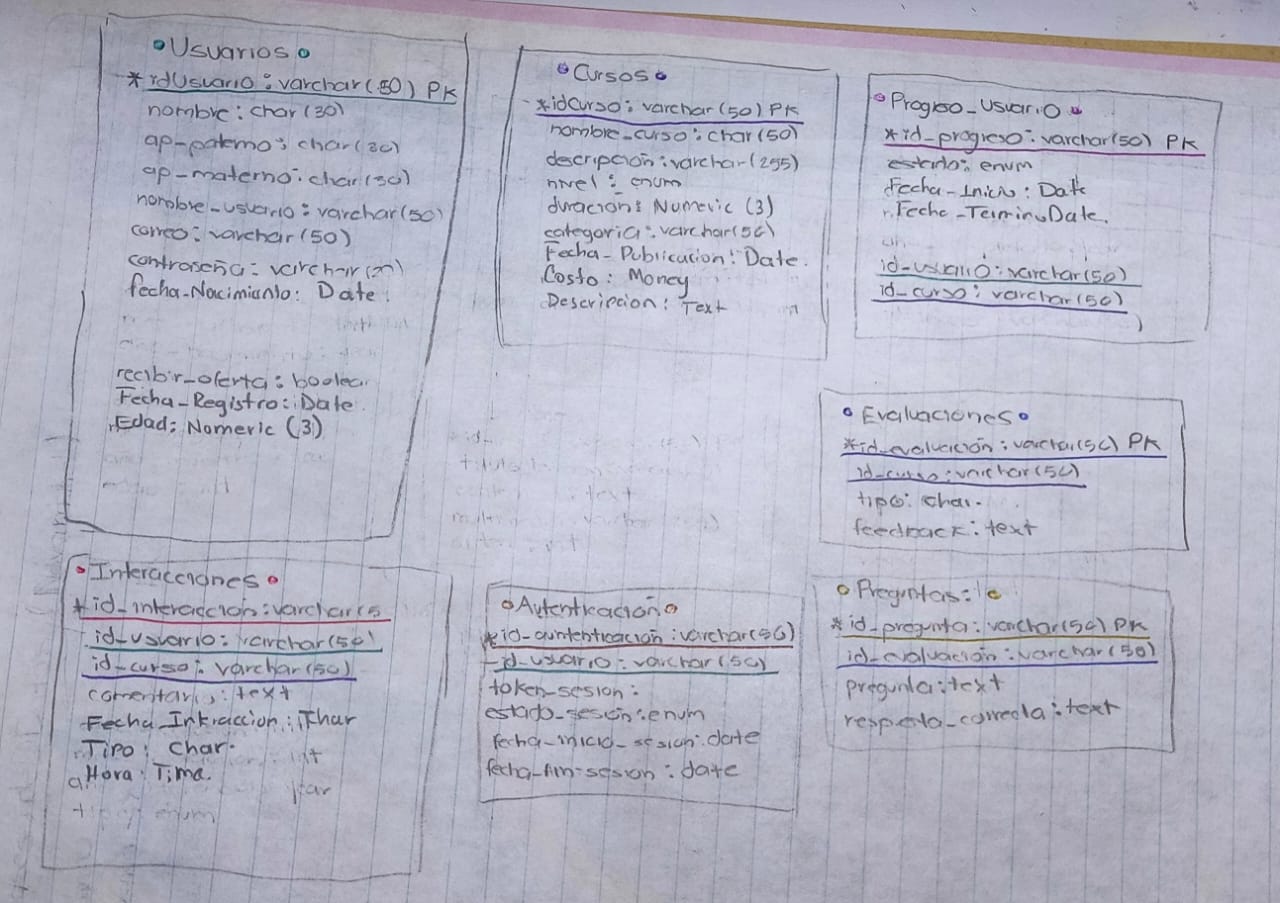 Usuarios
*idUsuario: varchar(50) PK
nombre: char(30)
ap-paterno: char(30)
ap-materno: char(30)
nombre-usuario: varchar(50)
correo: varchar(50)
contraseña: varchar
fecha-Nacimiento: Date
recibir-oferta: boolean
Fecha-Registro: Date
Edad: Numeric (3)
Cursos
*idCurso: varchar(50) PK
nombre-curso: char(50)
descripción: varchar(255)
nivel: enum
duracion: Numeric (3)
categoria: varchar(50)
Fecha-Publicacion: Date.
Costo: Money
Descripcion: Text
Progreso_Usuario
*id_progreso: varchar(50) PK
estado: enum
Fecha-Inicio: Date
Fecha-Termino Date.
id-usuario: varchar(50)
id-curso: varchar(50)
Evaluaciones
*id-evaluación: varchar(50) PK
id-curso: varchar(50)
tipo: char.
feedback: text
Interacciones
*id-interaccion: varchar(5
id-usuario: varchar(50)
id-curso: varchar(50)
comentario: text
Fecha-Interaccion:
Tipo: Char.
Hora: Time.
tipo: enum
Autenticación
*id-auntenticación: varchar(50)
id-usuario: varchar(50)
token-sesion:
estado-sesión: enum
fecha-inicio-sesion: date
fecha-fin-sesion: date
Preguntas:
*id-pregunta: varchar(50) PK
id-evaluación: varchar(50)
pregunta: text
respuesta-correcta: text